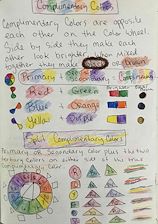 Complimentary Colors
Complimentary Colors are opposite
each other on the Color Wheel.
Side by side they make each
other look brighter. When Mixed
together they make or Brown
Primary + Secondary = Complimentary
Red + Green
Blue + Orange
Yellow + Purple
Split Complimentary Colors
Primary or Secondary Color plus the two
tertiary Colors on either side of the true
Complimentary Color.